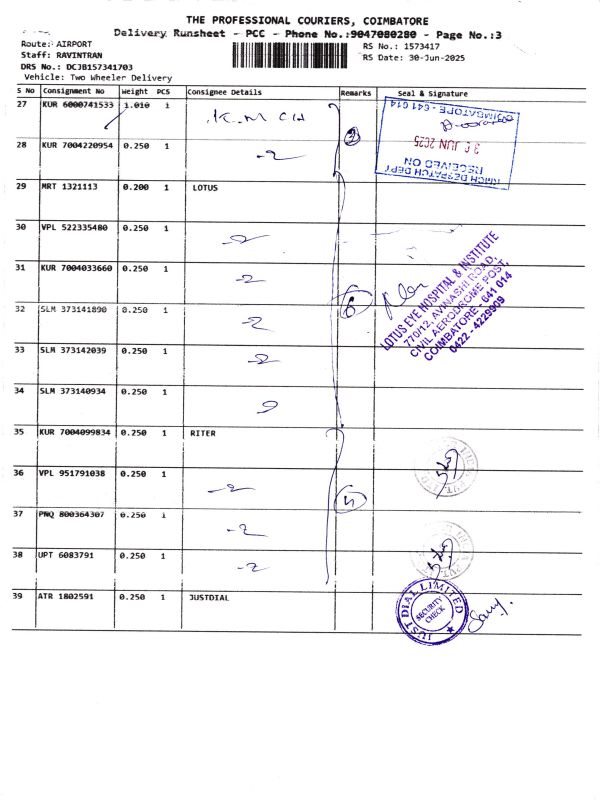 THE PROFESSIONAL COURIERS, COIMBATORE
Delivery Runsheet - PCC - Phone No.:9047080280 - Page No.:3
Route: AIRPORT RS No.: 1573417
Staff: RAVINTRAN RS Date: 30-Jun-2025
DRS No.: DCJB157341703
Vehicle: Two Wheeler Delivery
S No Consignment No Weight PCS Consignee Details Remarks Seal & Signature
27 KUR 6000741533 1.010 1 K.M CH
28 KUR 7004220954 0.250 1
KMCH DESPATCH DEPT
RECEIVED ON
30 JUN 2025
COIMBATORE - 641 014
29 MRT 1321113 0.200 1 LOTUS
30 VPL 522335480 0.250 1
31 KUR 7004033660 0.250 1
32 SLM 373141890 0.250 1 6
33 SLM 373142039 0.250 1
34 SLM 373140934 0.250 1
LOTUS EYE HOSPITAL & INSTITUTE
770/12, AVINASHI ROAD,
CIVIL AERODROME POST,
COIMBATORE - 641 014
0422 - 4229909
35 KUR 7004099834 0.250 1 RITER
36 VPL 951791038 0.250 1
37 PNQ 800364307 0.250 1
38 UPT 6083791 0.250 1
39 ATR 1802591 0.250 1 JUSTDIAL
JUST DIAL LIMITED
SECURITY
CHECK